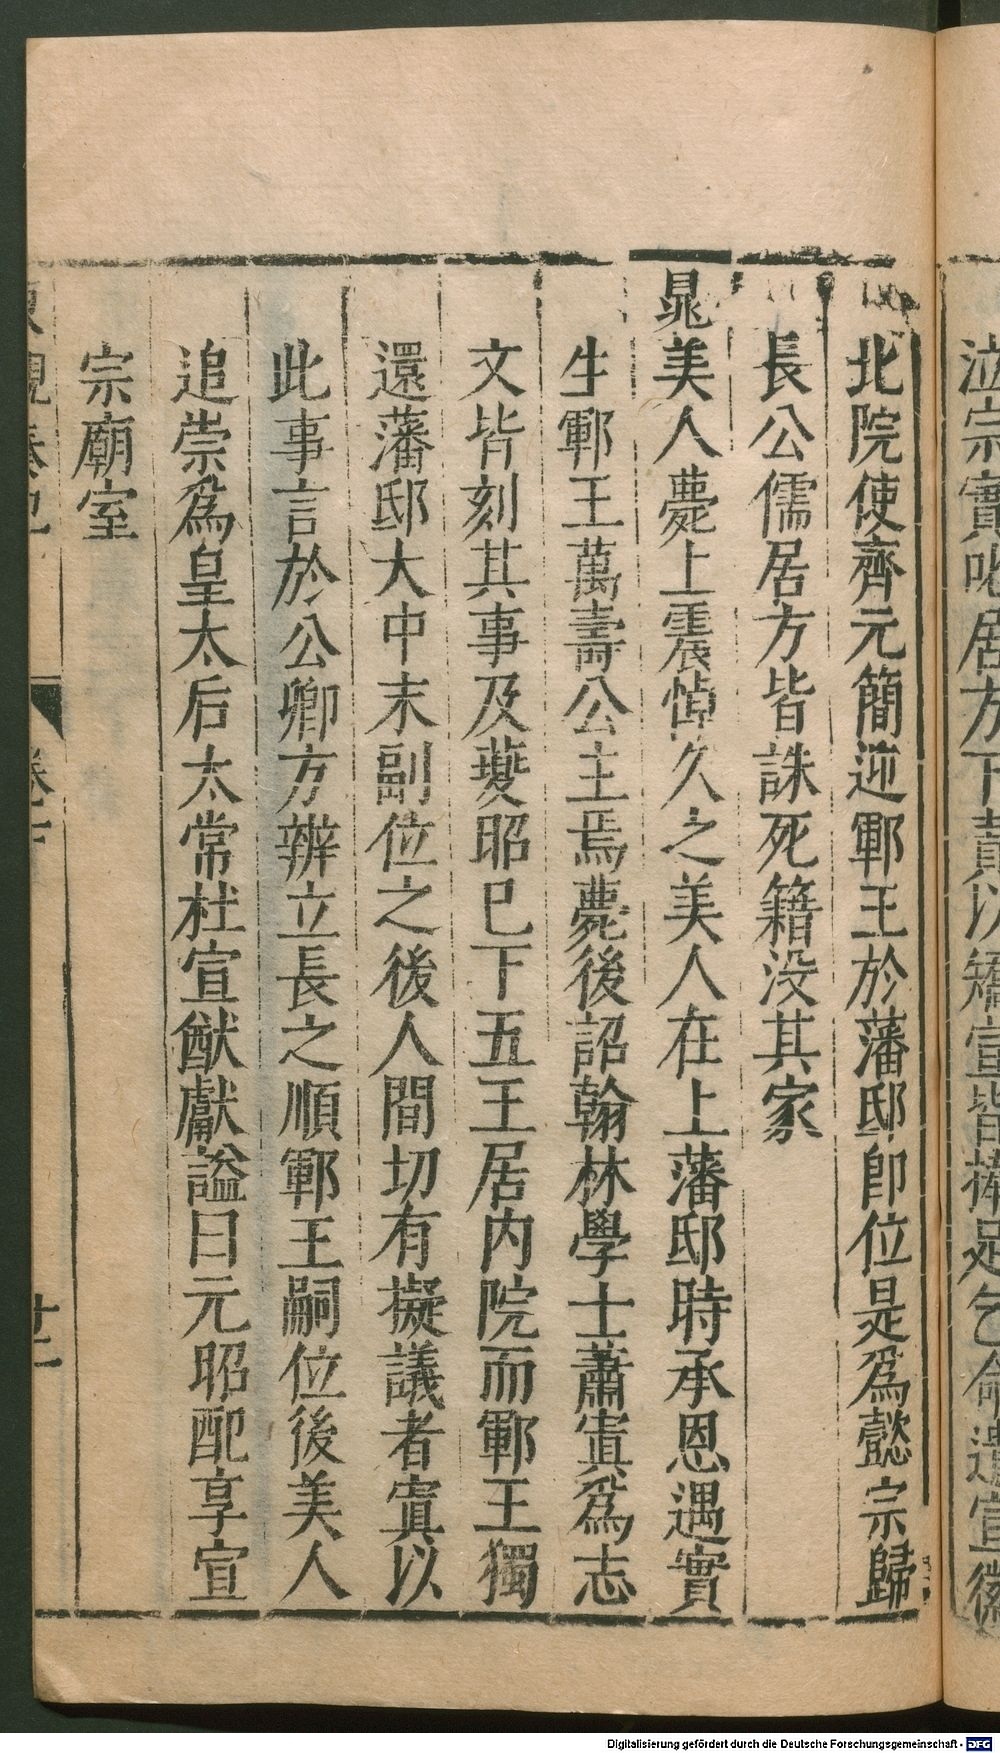 泣宗實叱居方下責以矯宣皆捧足乞命遣宣徽
北院使齊元簡迎鄆王於藩邸即位是爲懿宗歸
長公儒居方皆誅死籍没其家
晁美人薨上震悼久之美人在上藩邸時承恩遇實
生鄆王萬壽公主焉薨後詔翰林學士蕭寘爲志
文皆刻其事及夔昭已下五王居内院而鄆王獨
還藩邸大中末副位之後人間切有擬議者寘以
此事言於公卿方辨立長之順鄆王嗣位後美人
追崇爲皇太后太常杜宣猷獻謚曰元昭配享宣
宗廟室
東觀奏記 卷下 廿二
Digitalisierung gefördert durch die Deutsche Forschungsgemeinschaft - DFG